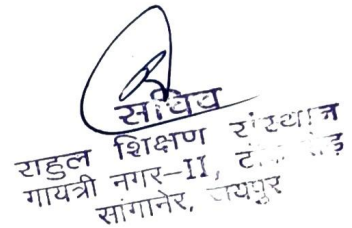 सचिव
राहुल शिक्षण संस्थान
गायत्री नगर-II, टोंक रोड़
सांगानेर, जयपुर